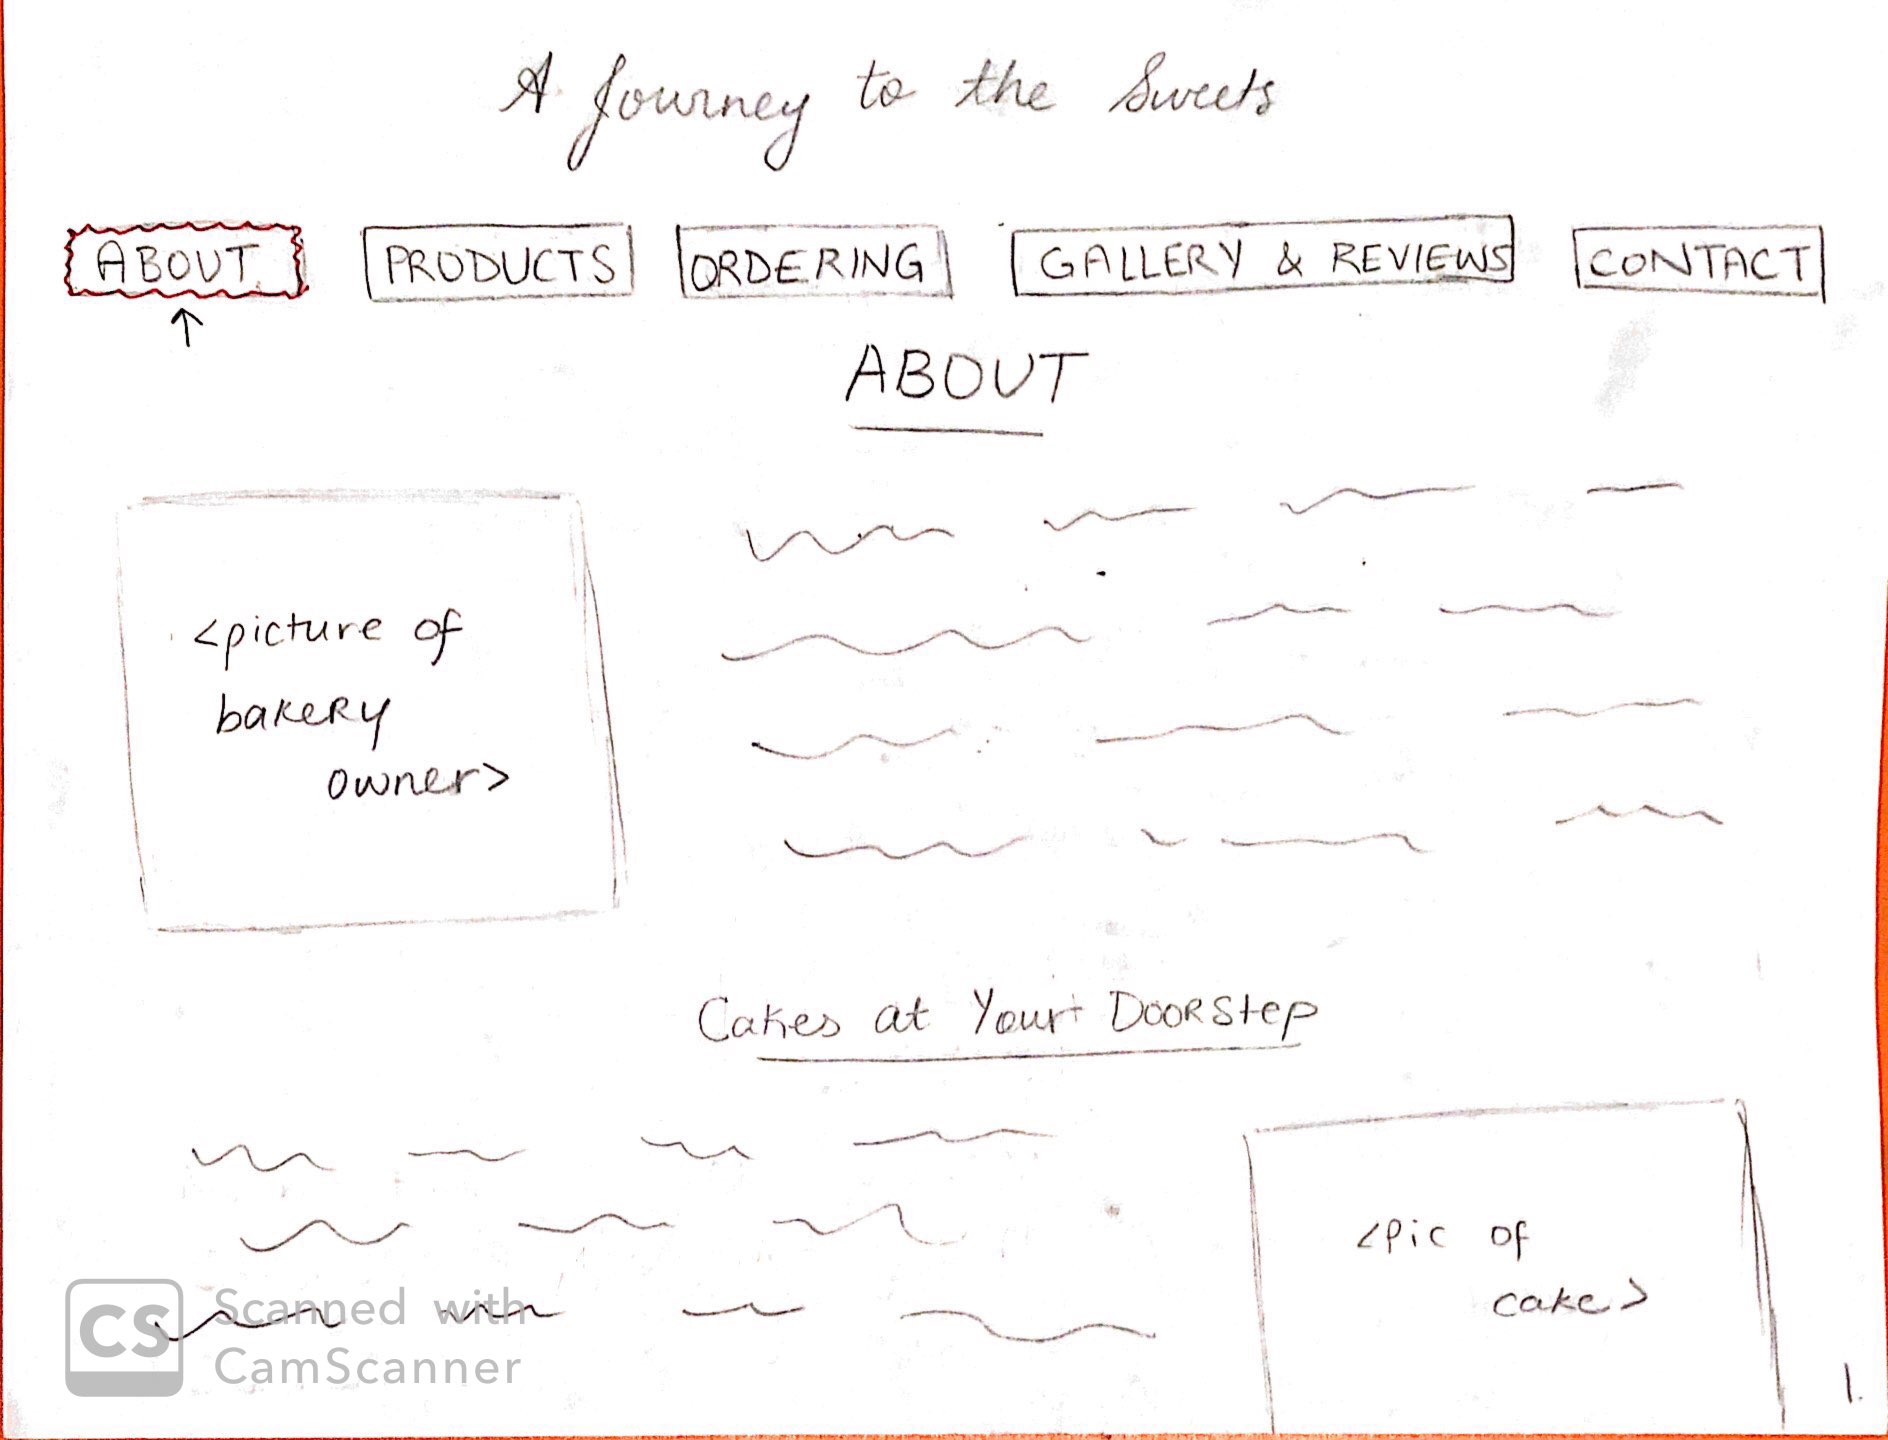 A Journey to the Sweets
ABOUT PRODUCTS ORDERING GALLERY & REVIEWS CONTACT
ABOUT
<picture of
bakery
owner>
Cakes at Your Doorstep
<pic of
cake>
CS Scanned with
CamScanner
1.